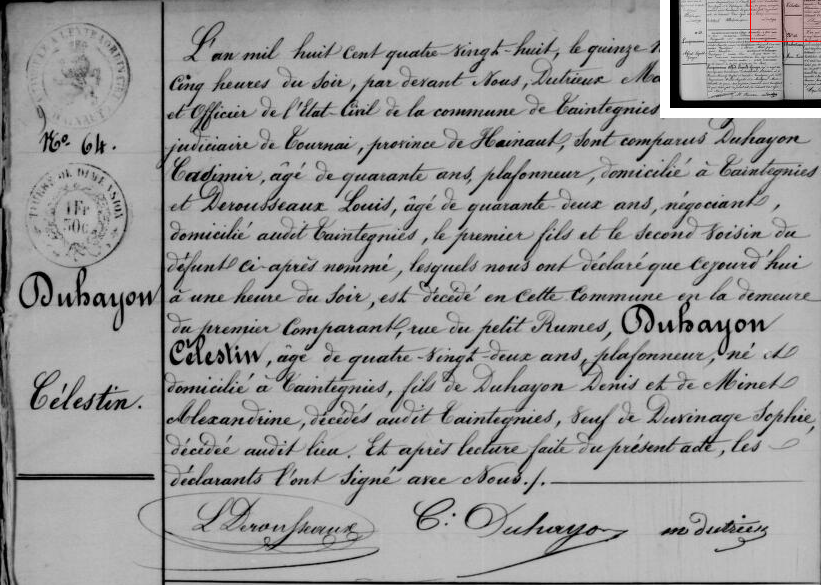 No. 64.
TIMBRE DE DIMENSION
1 Fr
50c
Duhayon
Célestin.
L'an mil huit cent quatre vingt-huit, le quinze
cinq heures du soir, par devant Nous, Dutrieux
et Officier de l'Etat-Civil de la commune de Taintegnies
judiciaire de Tournai, province de Hainaut, sont comparus Duhayon
Casimir, âgé de quarante ans, plafonneur, domicilié à Taintegnies
et Derousseaux Louis, âgé de quarante-deux ans, négociant,
domicilié audit Taintegnies, le premier fils et le second voisin du
défunt ci-après nommé, lesquels nous ont déclaré que cejourd'hui
à une heure du soir, est décédé en cette commune en la demeure
du premier comparant, rue du petit Rumes, Duhayon
Célestin, âgé de quatre-vingt-deux ans, plafonneur, né et
domicilié à Taintegnies, fils de Duhayon Denis et de Minet
Alexandrine, décédés audit Taintegnies, veuf de Duvinage Sophie,
décédée audit lieu. Et après lecture faite du présent acte, les
déclarants l'ont signé avec Nous./.
L Derousseaux C: Duhayon m dutrieux